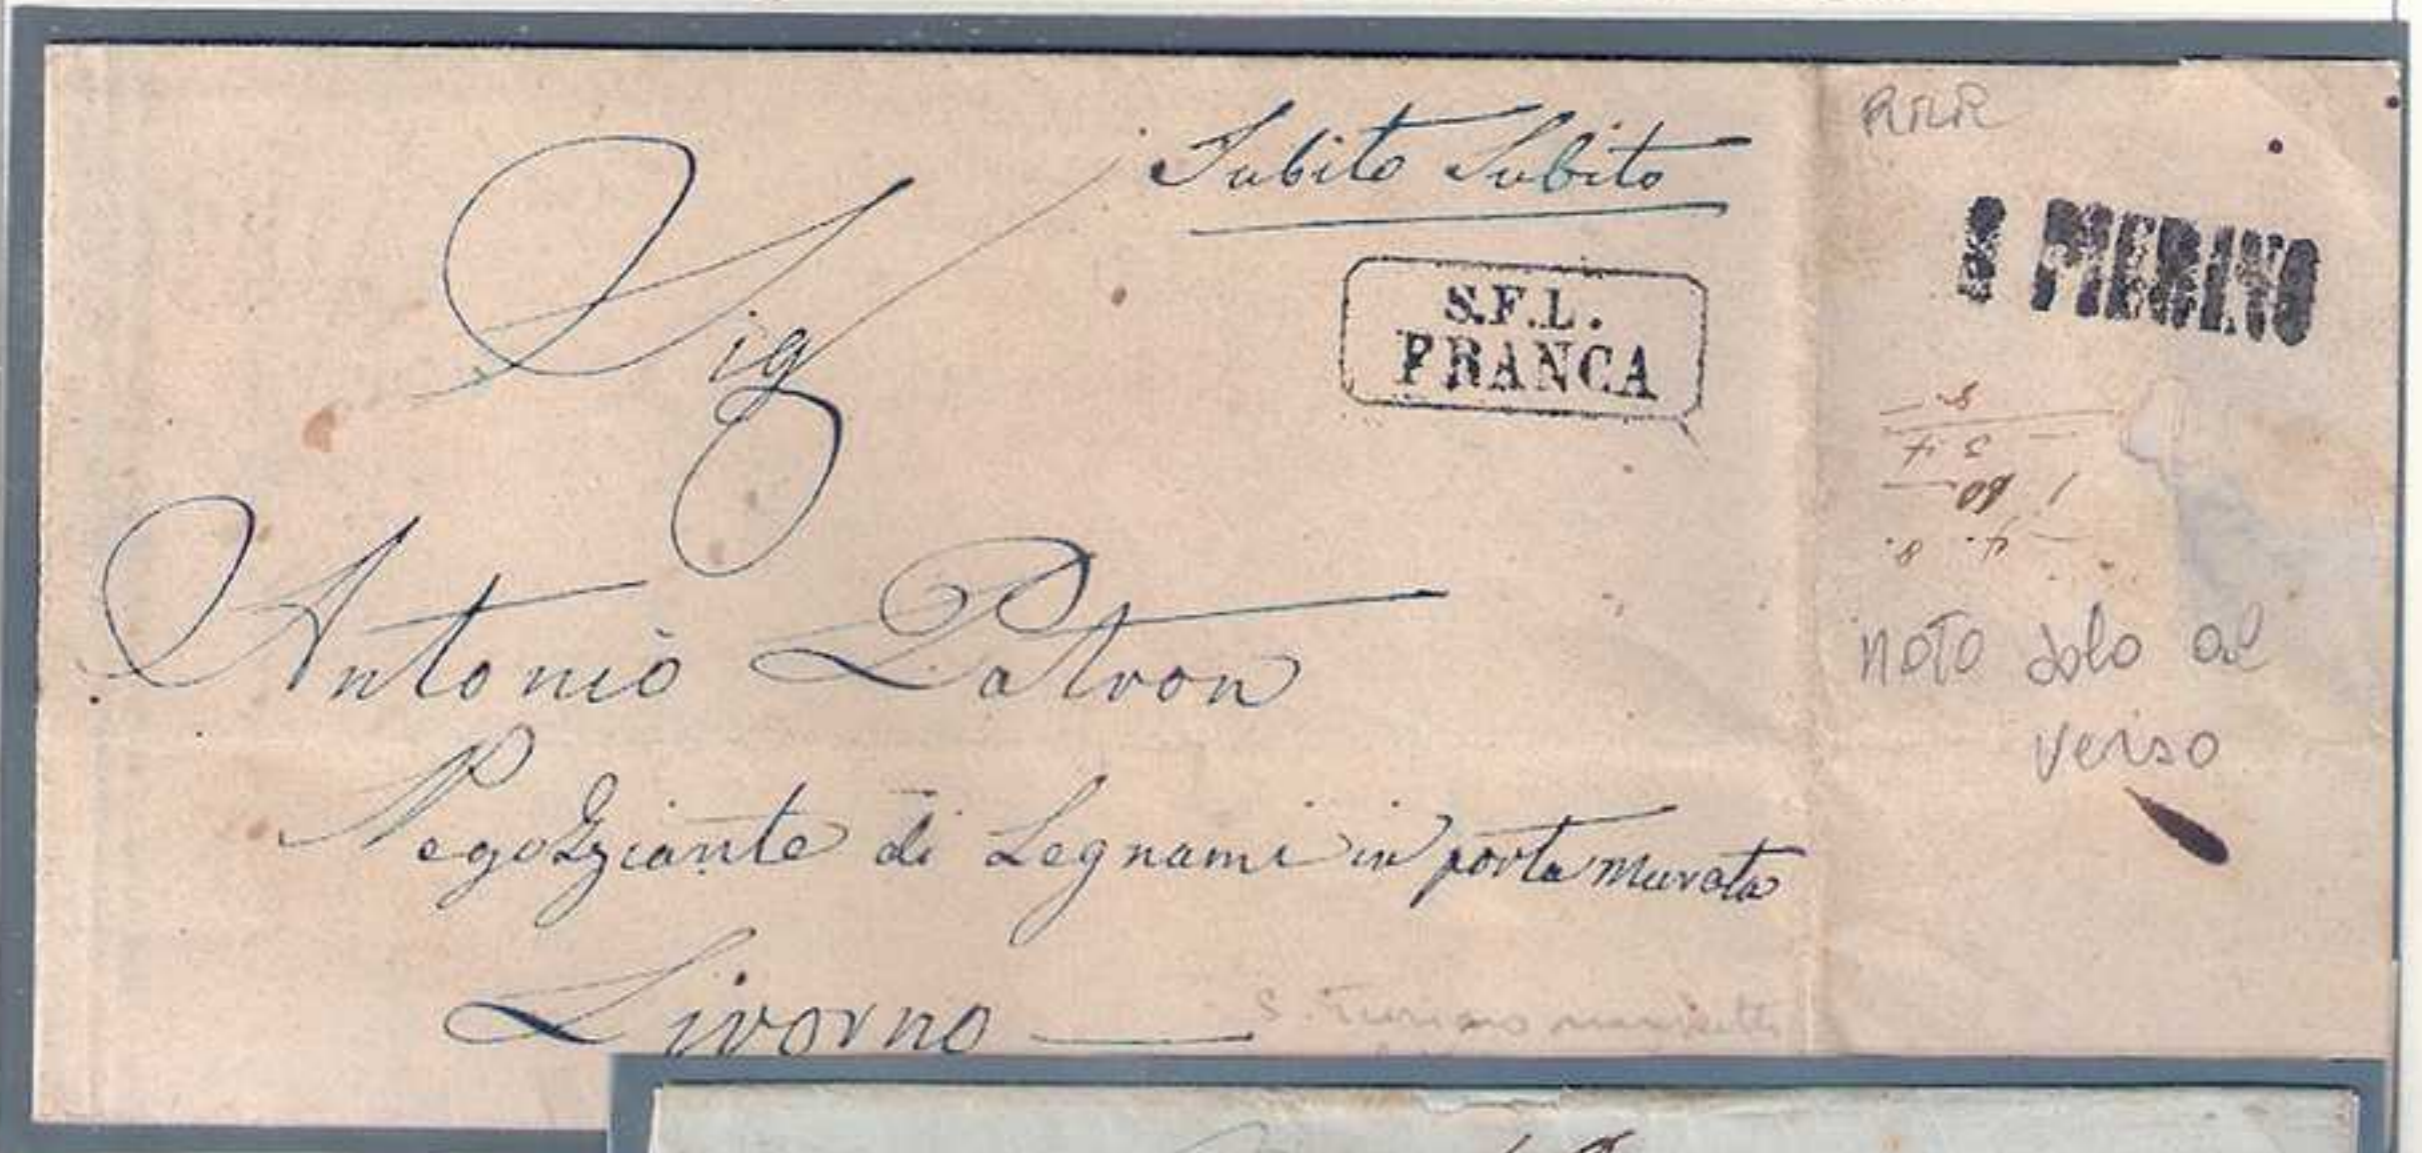 Subito Subito
Sig
S.F.L.
FRANCA
Antonio Patron
Negozziante di Legnami in porta Murata
Livorno
RRR
S PIERINO
noto solo al
verso